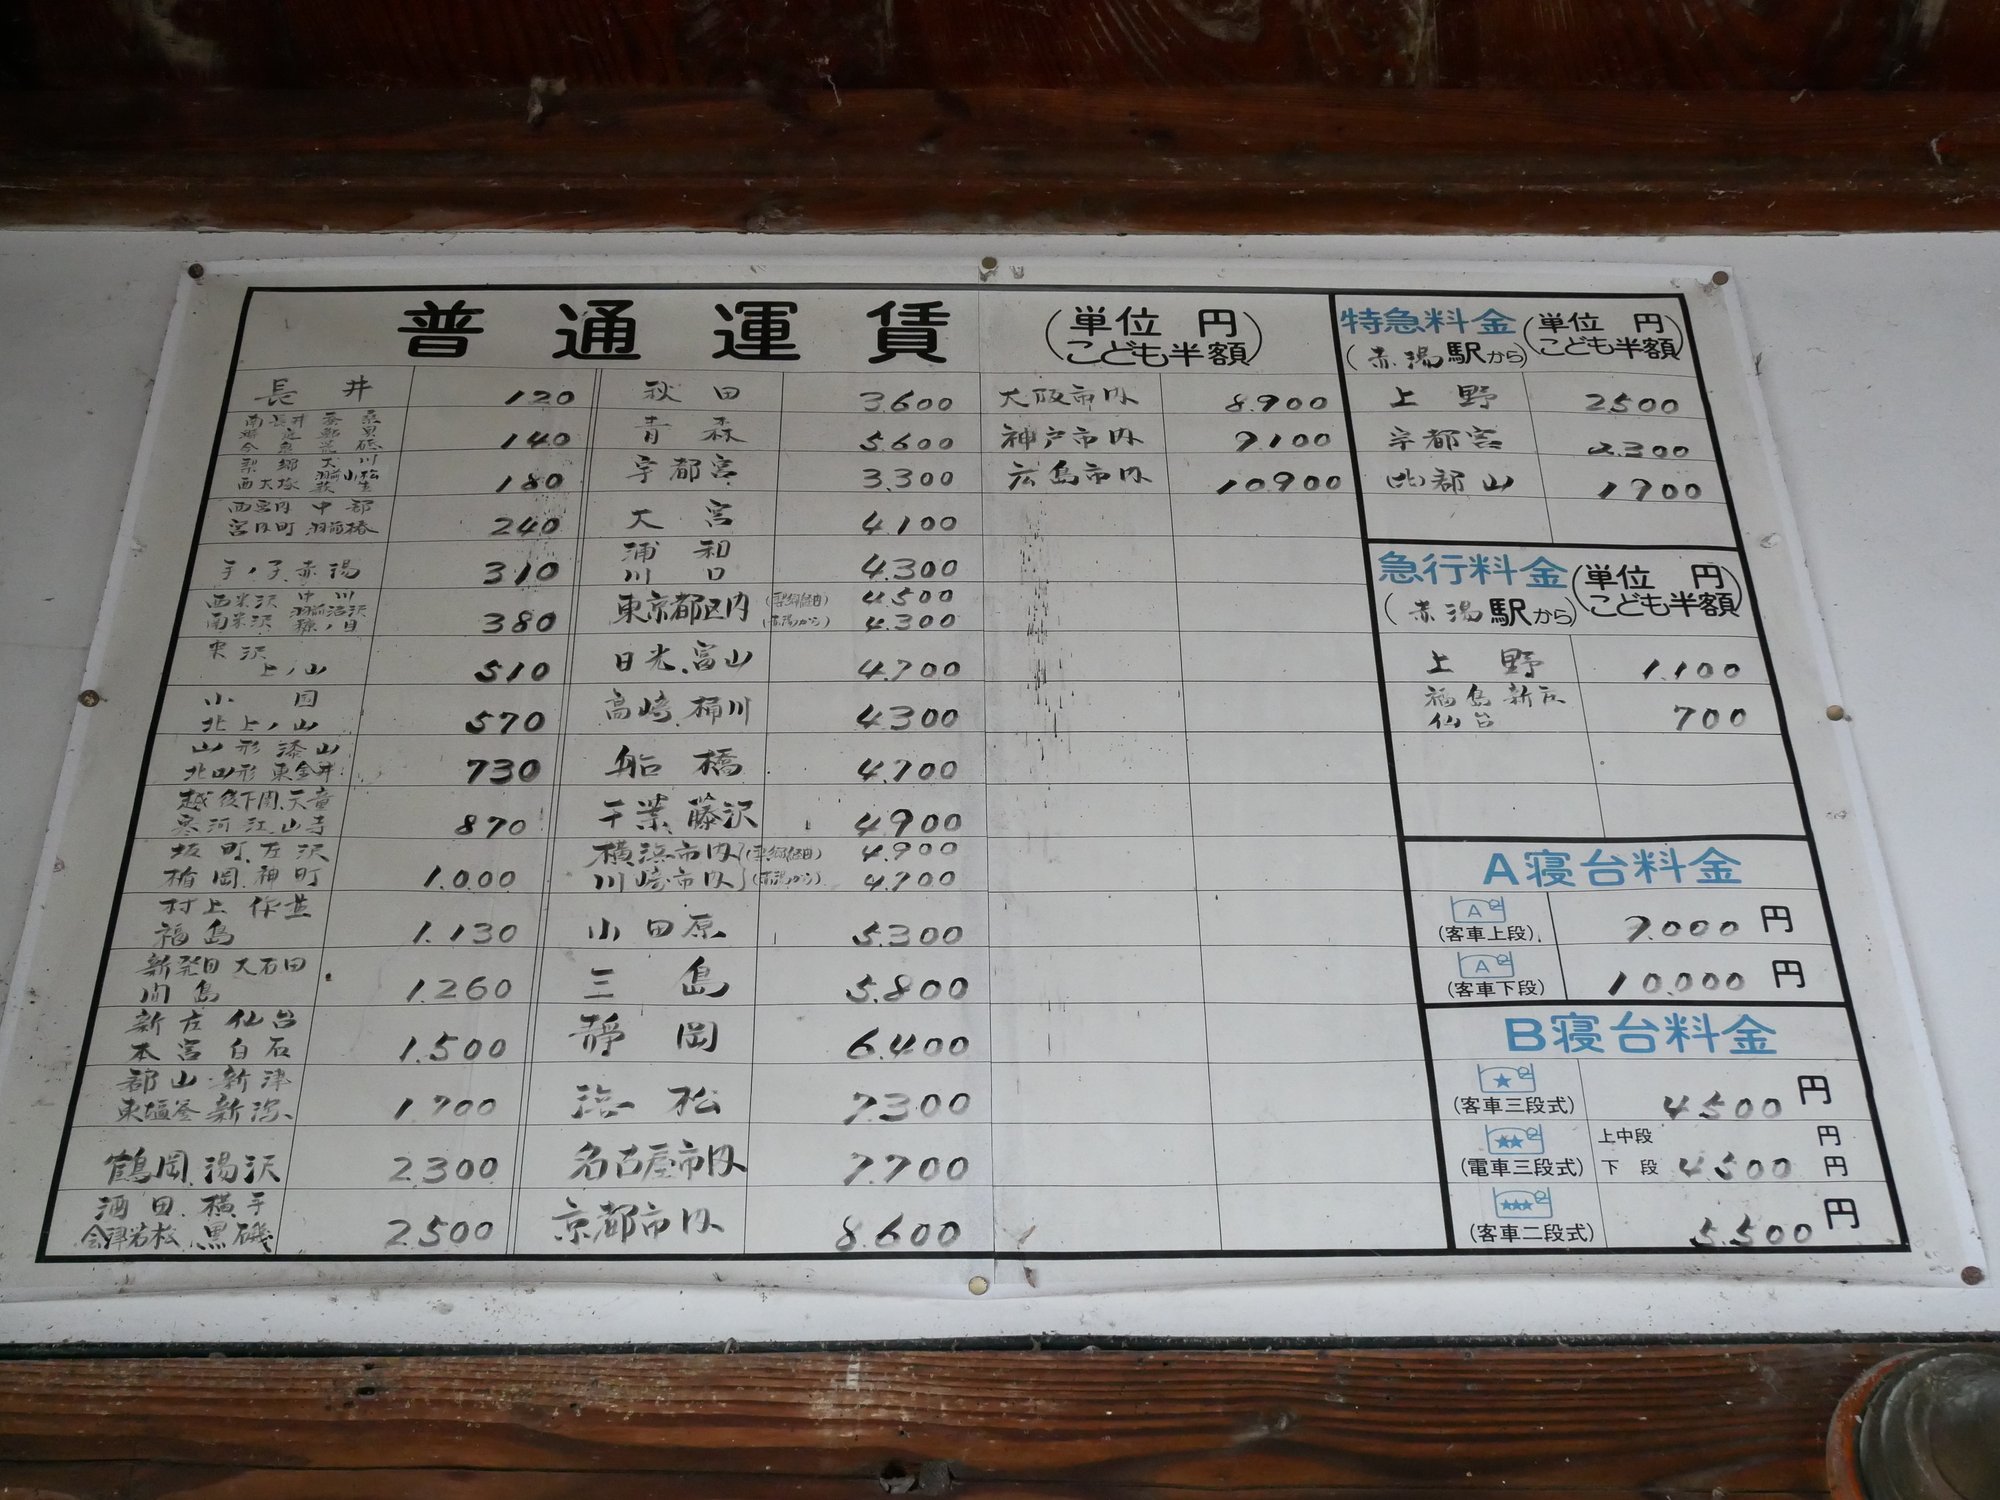 普通運賃 (単位 円 こども半額)
長井 120
140
180
西宮内 中郡
宮内町 羽前椿 240
手ノ子、赤湯 310
西米沢 中川
南米沢 380
米沢
上ノ山 510
小国
北上ノ山 570
山形 漆山
北山形 東金井 730
越後下関、天童
寒河江、山寺 870
坂町、左沢
楯岡、神町 1.000
村上
福島 1.130
新発田 大石田
1.260
新庄 仙台
本宮 白石 1.500
郡山 新津
東塩釜 新潟 1.700
鶴岡、湯沢 2.300
酒田、横手
会津若松、黒磯 2.500
秋田 3.600
青森 5.600
宇都宮 3.300
大宮 4.100
浦和
川口 4.300
東京都区内 4.500
(赤湯から) 4.300
日光、富山 4.700
高崎、桶川 4.300
船橋 4.700
千葉、藤沢 4.900
横浜市内 4.900
川崎市内 4.700
小田原 5.300
三島 5.800
静岡 6.400
浜松 7.300
名古屋市内 7.700
京都市内 8.600
大阪市内 8.900
神戸市内 9.100
広島市内 10.900
特急料金 (単位 円 こども半額)
(赤湯駅から)
上野 2500
宇都宮 2.300
郡山 1900
急行料金 (単位 円 こども半額)
(赤湯駅から)
上野 1.100
福島 新庄
仙台 700
A寝台料金
A
(客車上段) 9.000円
A
(客車下段) 10.000円
B寝台料金
★
(客車三段式) 4500円
★★ 上中段 円
(電車三段式) 下段 4500円
★★★
(客車二段式) 5.500円